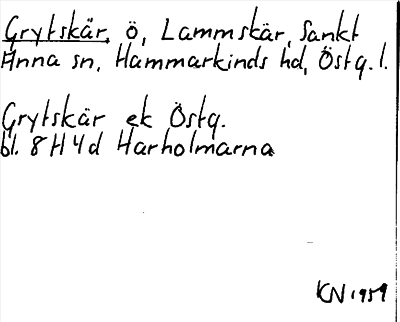 Grytskär, ö, Lammskär, Sankt
Anna sn, Hammarkinds hd, Östg. l.
Grytskär ek Östg.
bl. 8 H 4d Harholmarna
KN 1959